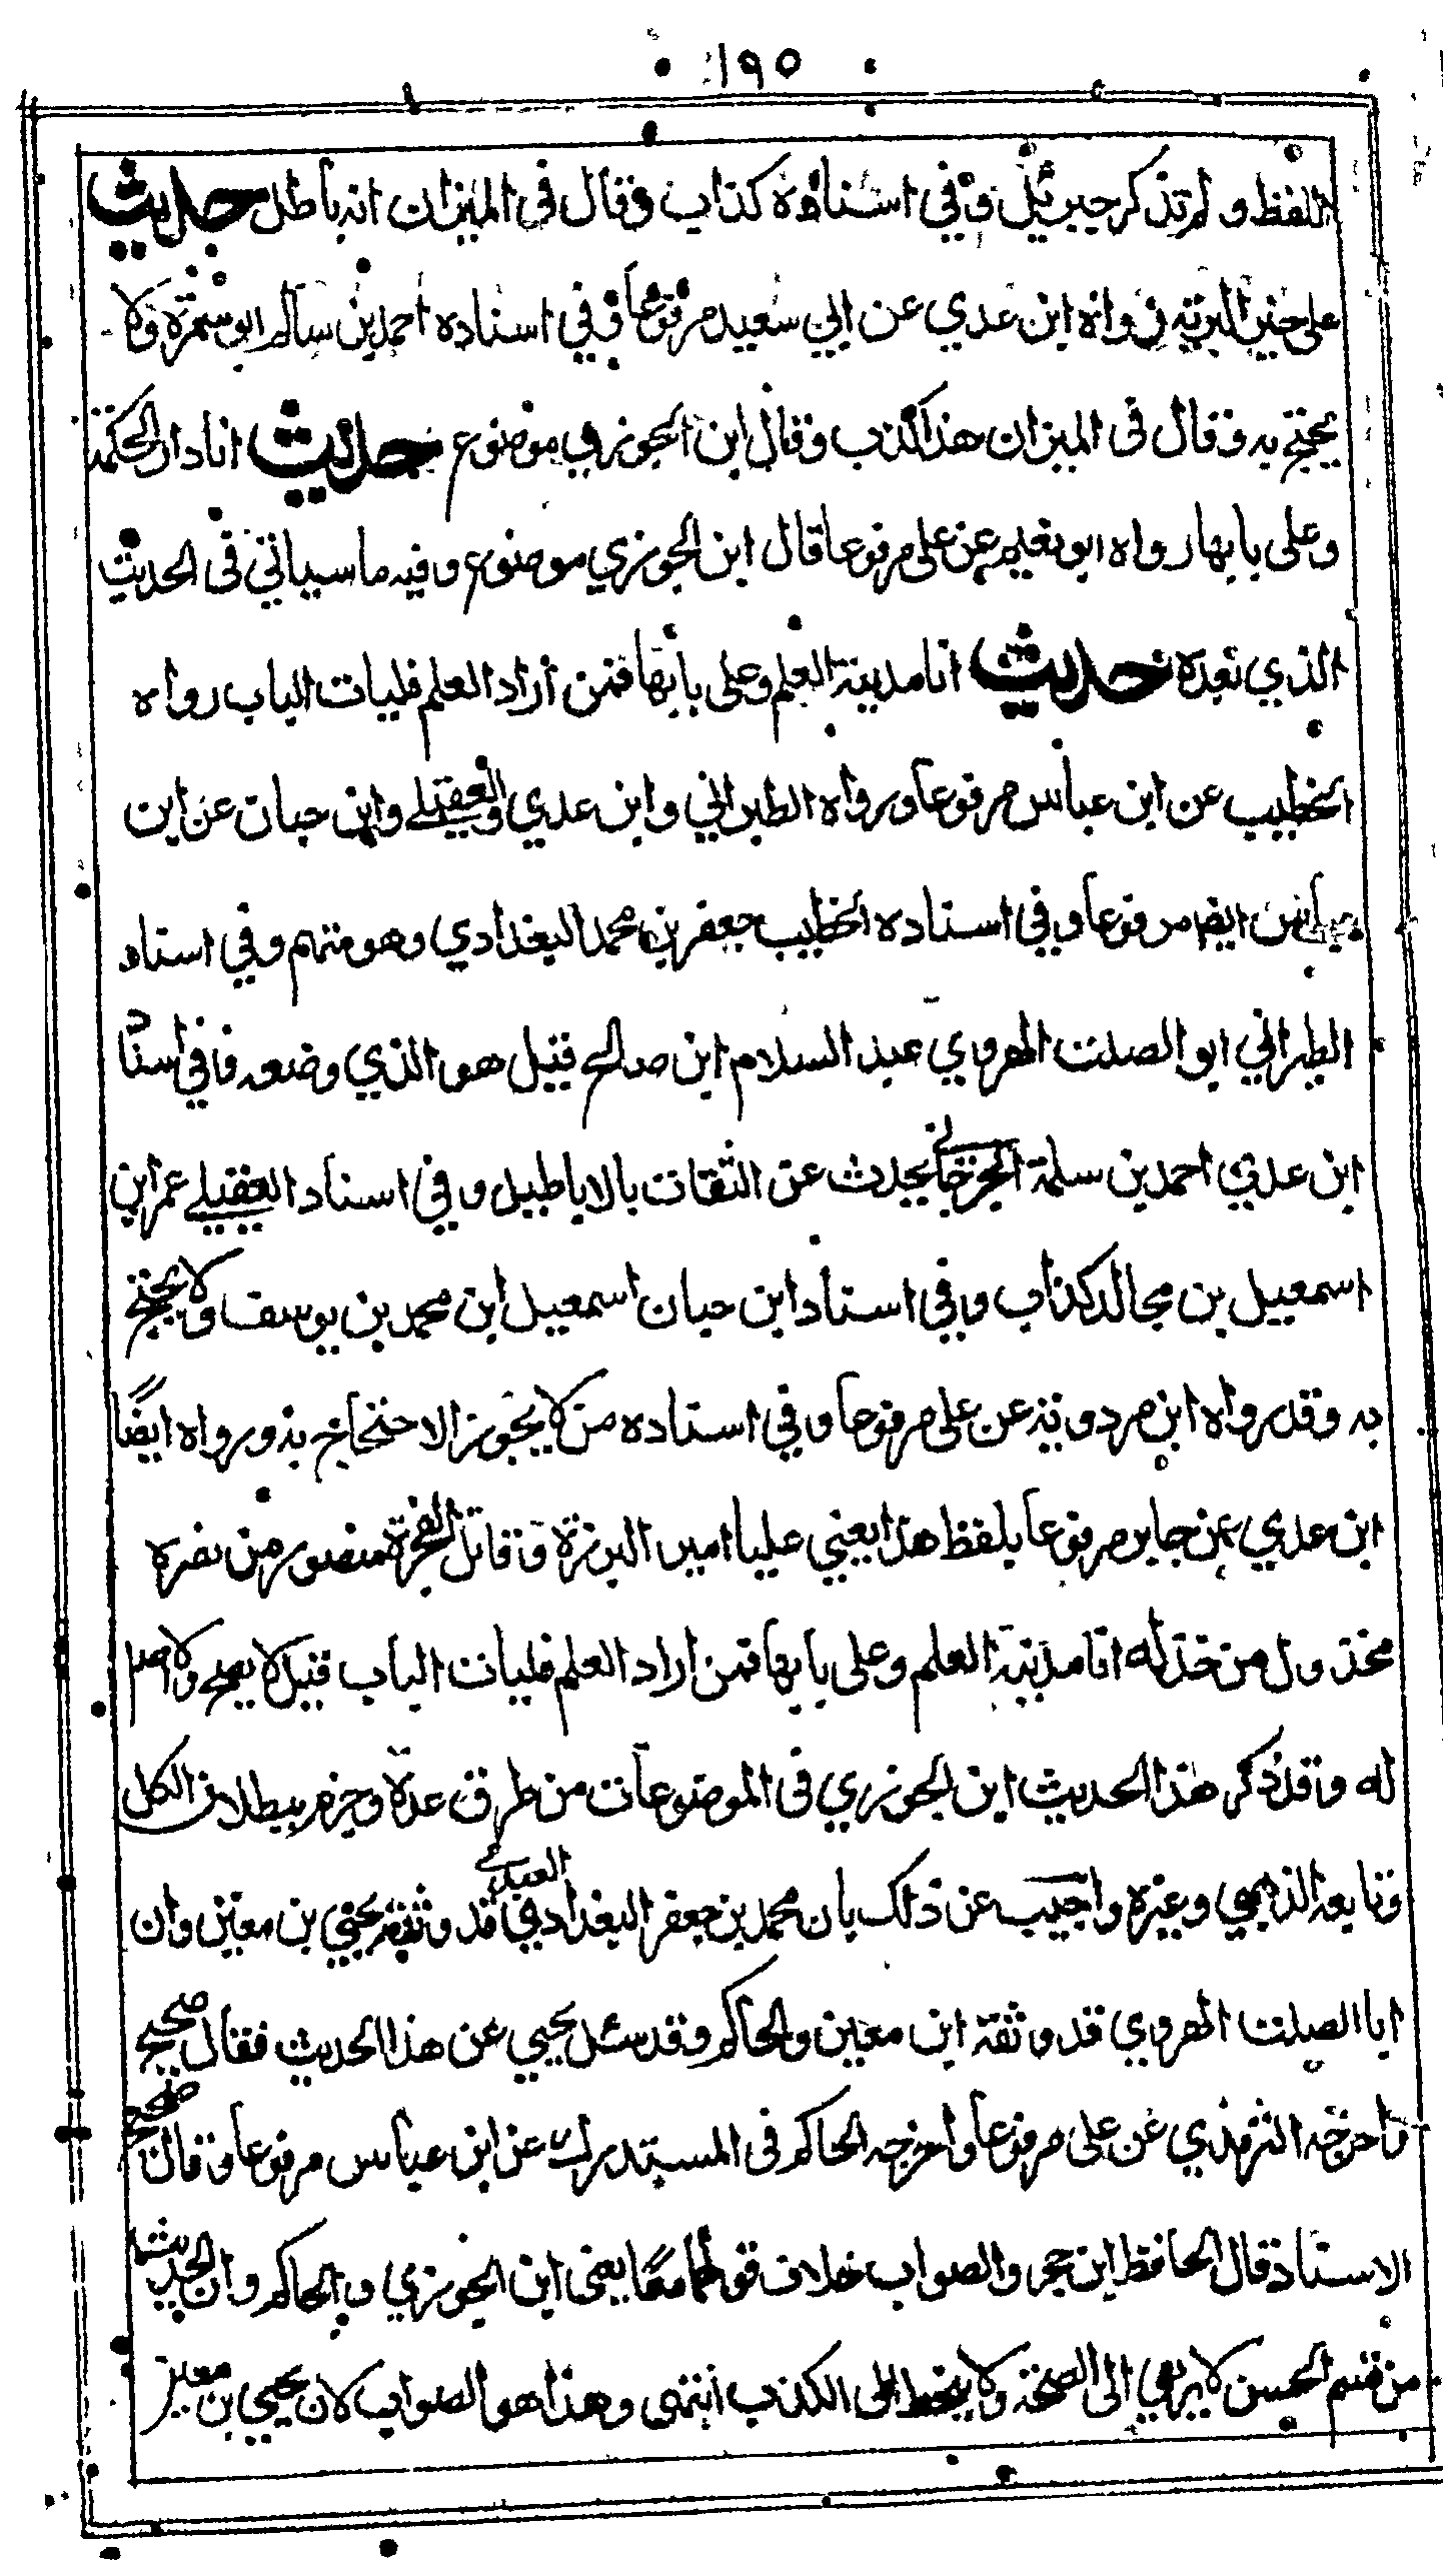 ١٩٥
اللفظ و لم تذكر جبرئيل و في اسناده كذاب و قال في الميزان انه باطل حديث
علي خير البرية رواه ابن عدي عن ابي سعيد مرفوعا و في اسناده احمد بن سالم ابو سمرة ولا
يحتج به و قال في الميزان هذا كذب و قال ابن الجوزي موضوع حديث انا دار الحكمة
و علي بابها رواه ابو نعيم عن علي مرفوعا قال ابن الجوزي موضوع و فيه ما سياتي في الحديث
الذي بعده حديث انا مدينة العلم و علي بابها فمن اراد العلم فليات الباب رواه
الخطيب عن ابن عباس مرفوعا و رواه الطبراني و ابن عدي و العقيلي و ابن حبان عن ابن
عباس ايضا مرفوعا و في اسناده الخطيب جعفر بن محمد البغدادي و هو متهم و في اسناد
الطبراني ابو الصلت الهروي عبد السلام ابن صالح قيل هو الذي وضعه و في اسناد
ابن عدي احمد بن سلمة الجرجاني يحدث عن الثقات بالاباطيل و في اسناد العقيلي عمر ابن
اسمعيل بن مجالد كذاب و في اسناد ابن حبان اسمعيل ابن محمد بن يوسف ولا يحتج
به و قد رواه ابن مردويه عن علي مرفوعا و في اسناده من لا يجوز الاحتجاج به و رواه ايضًا
ابن عدي عن جابر مرفوعا بلفظ هذا يعني عليا امير البررة و قاتل الفجرة منصور من نصره
مخذول من خذله انا مدينة العلم و علي بابها فمن اراد العلم فليات الباب قيل لا يصح ولا اصل
له و قد ذكر هذا الحديث ابن الجوزري في الموضوعات من طرق عدة و جزم ببطلان الكل
و تابعه الذهبي و غيره و اجيب عن ذلك بان محمد بن جعفر البغدادي العبدي قد وثقه يحيي بن معين و ان
ابا الصلت الهروي قد وثقه ابن معين و الحاكم و قد سئل يحيي عن هذا الحديث فقال صحيح
و اخرجه الترمذي عن علي مرفوعا و اخرجه الحاكم في المستدرك عن ابن عباس مرفوعا و قال صحيح
الاسناد قال الحافظ ابن حجر و الصواب خلاف قولهما معًا يعنى ابن الجوزي و الحاكم و ان الحديث
من قسم الحسن لا يرتقي الى الصحة ولا ينحط الى الكذب انتهى و هذا هو الصواب لان يحيي بن معين